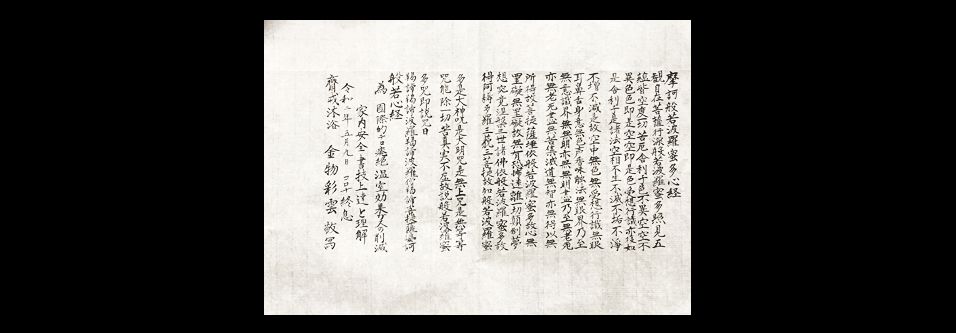 摩訶般若波羅蜜多心経
観自在菩薩行深般若波羅蜜多照見五
蘊皆空度一切苦厄舎利子色不異空空不
異色色即是空空即是色受想行識亦復如
是舎利子是諸法空相不生不滅不垢不浄
不増不減是故空中無色無受想行識無眼
耳鼻舌身意無色声香味触法無眼界乃至
無意識界無無明亦無無明尽乃至無老死
亦無老死尽無苦集滅道無智亦無得以無
所得故菩提薩埵依般若波羅蜜多故心無
罣礙無罣礙故無有恐怖遠離一切顛倒夢
想究竟涅槃三世諸佛依般若波羅蜜多故
得阿耨多羅三藐三菩提故知般若波羅蜜
多是大神呪是大明呪是無上呪是無等等
呪能除一切苦真実不虚故説般若波羅蜜
多呪即説呪曰
羯諦羯諦波羅羯諦波羅僧羯諦菩提薩婆訶
般若心経
為 国際的 温室効果 削減
家内安全書技上達と理解
令和二年五月九日 終息
齋戒沐浴 金物彩雲 敬写